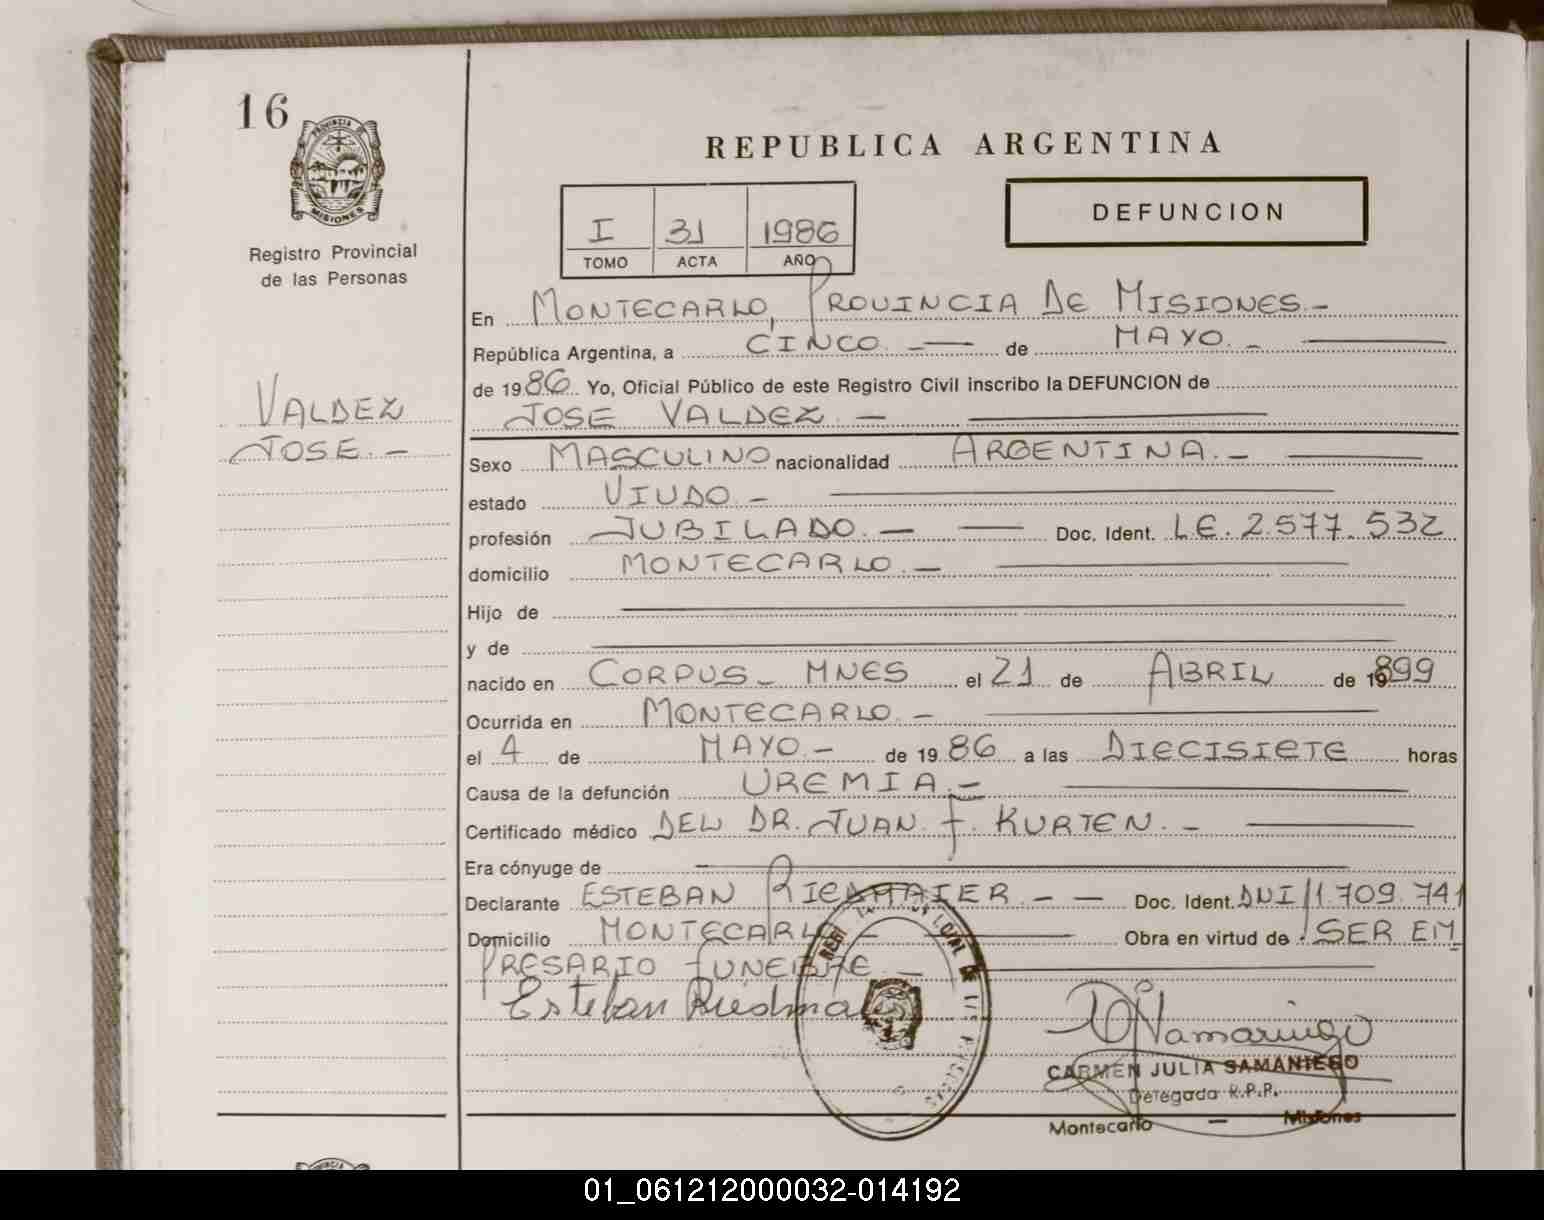 16
PROVINCIA DE
MISIONES
Registro Provincial
de las Personas
REPUBLICA ARGENTINA
I 31 1986
TOMO ACTA AÑO
DEFUNCION
En MONTECARLO, PROVINCIA DE MISIONES.-
República Argentina, a CINCO. - de MAYO. -
de 1986. Yo, Oficial Público de este Registro Civil inscribo la DEFUNCION de
JOSE VALDEZ. -
VALDEZ
JOSE. -
Sexo MASCULINO nacionalidad ARGENTINA. -
estado VIUDO. -
profesión JUBILADO. - Doc. Ident. L.E. 2.577.532
domicilio MONTECARLO. -
Hijo de
y de
nacido en CORPUS - MNES el 21 de ABRIL de 1899
Ocurrida en MONTECARLO. -
el 4 de MAYO. - de 1986 a las DIECISIETE horas
Causa de la defunción UREMIA. -
Certificado médico DEL DR. JUAN F. KURTEN. -
Era cónyuge de
Declarante ESTEBAN RIEDMAIER. - Doc. Ident. DNI 11.709.741
Domicilio MONTECARLO - Obra en virtud de: SER EM
PRESARIO FUNEBRE -
Esteban Riedma
CARMEN JULIA SAMANIEGO
Delegada R.P.P.
Montecarlo - Misiones
01_061212000032-014192